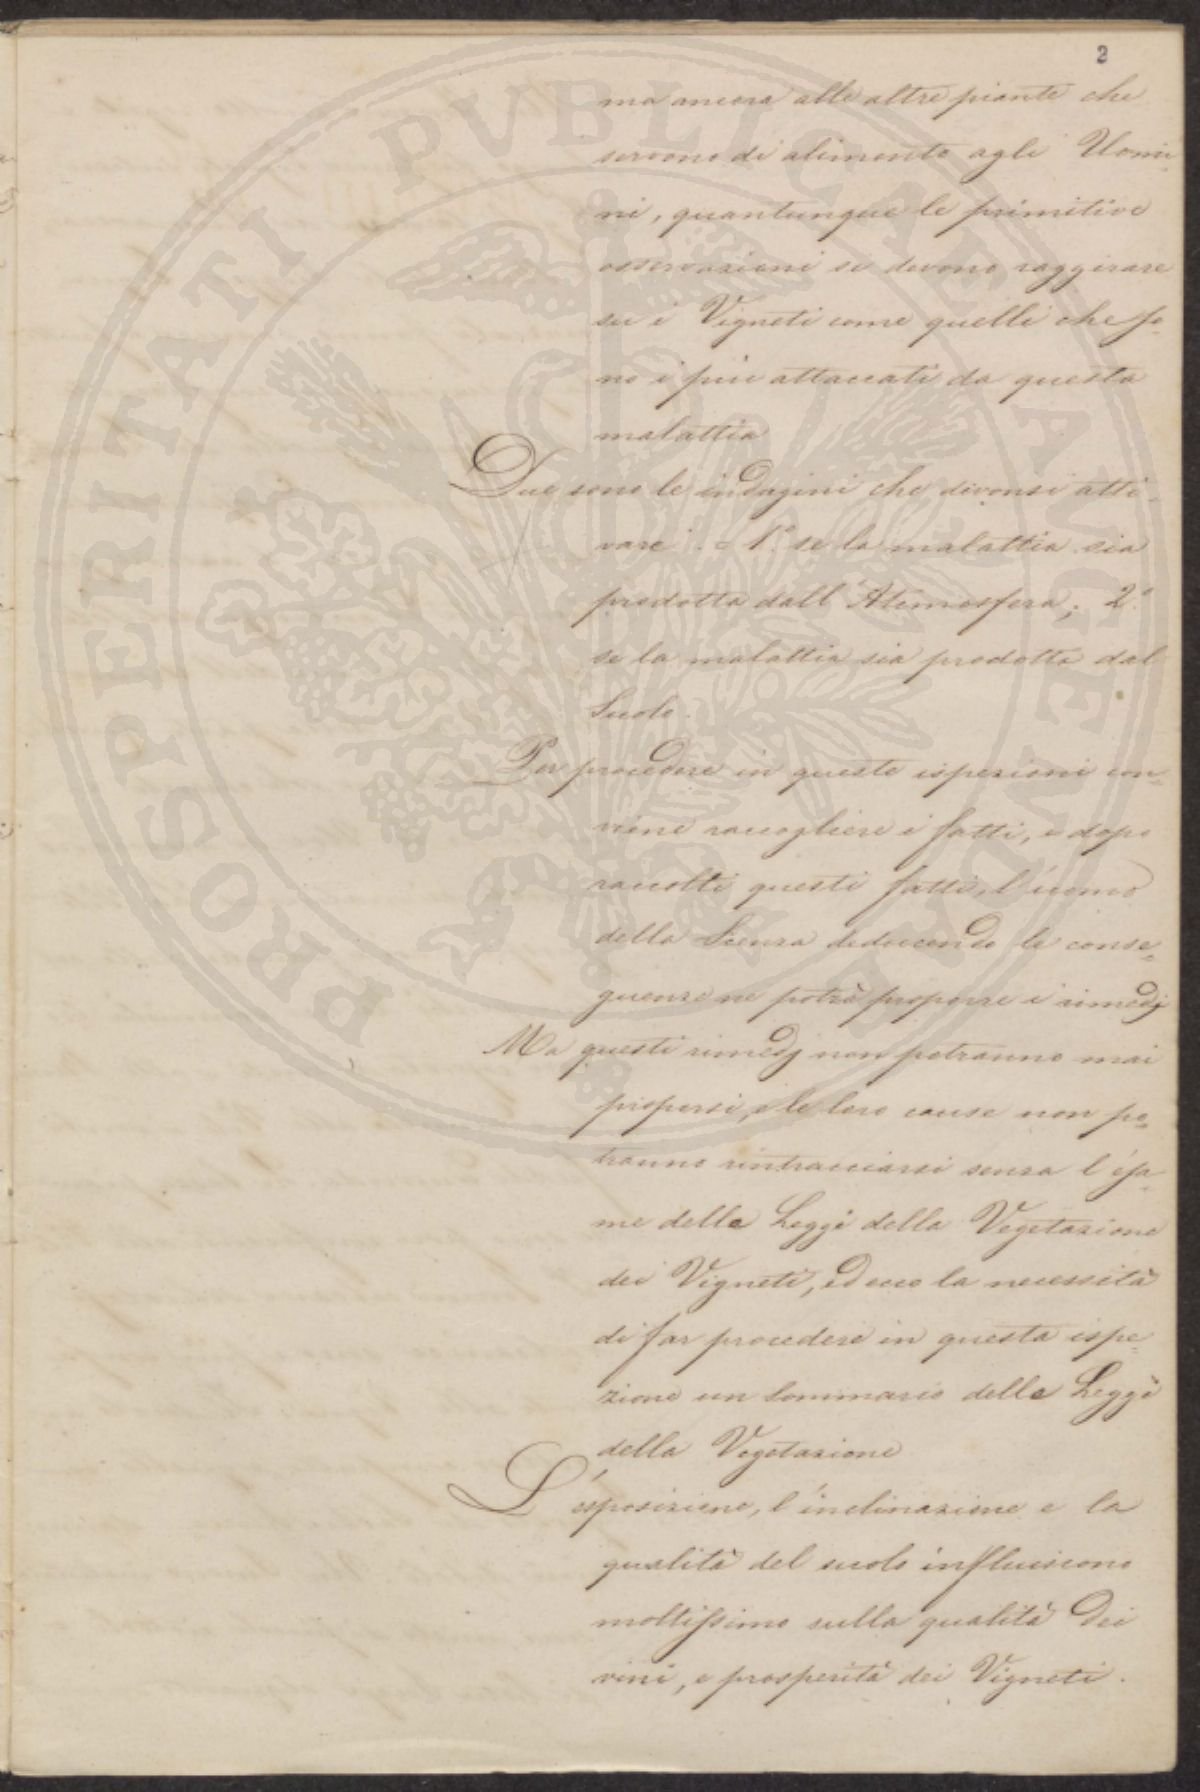 2
ma ancora alle altre piante che
servono di alimento agli Uomi-
ni, quantunque le primitive
osservazioni si devono raggirare
su i Vigneti come quelli che so-
no i più attaccati da questa
malattia
Due sono le indagini che devonsi atti-
vare. = 1.° se la malattia sia
prodotta dall'Atmosfera; 2.°
se la malattia sia prodotta dal
Suolo.
Per procedere in queste ispezioni con-
viene raccogliere i fatti, e dopo
raccolti questi fatti, l'uomo
della Scienza deducendo le conse-
guenze ne potrà proporre i rimedj
Ma questi rimedj non potranno mai
proporsi, e le loro cause non po-
tranno rintracciarsi senza l'esa-
me delle Leggi della Vegetazione
dei Vigneti, ed ecco la necessità
di far procedere in questa ispe-
zione un Sommario delle Leggi
della Vegetazione
L'esposizione, l'inclinazione e la
qualità del suolo influiscono
moltissimo sulla qualità dei
vini, e prosperità dei Vigneti.
PROSPERITATI PVBLICAE AVGENDAE